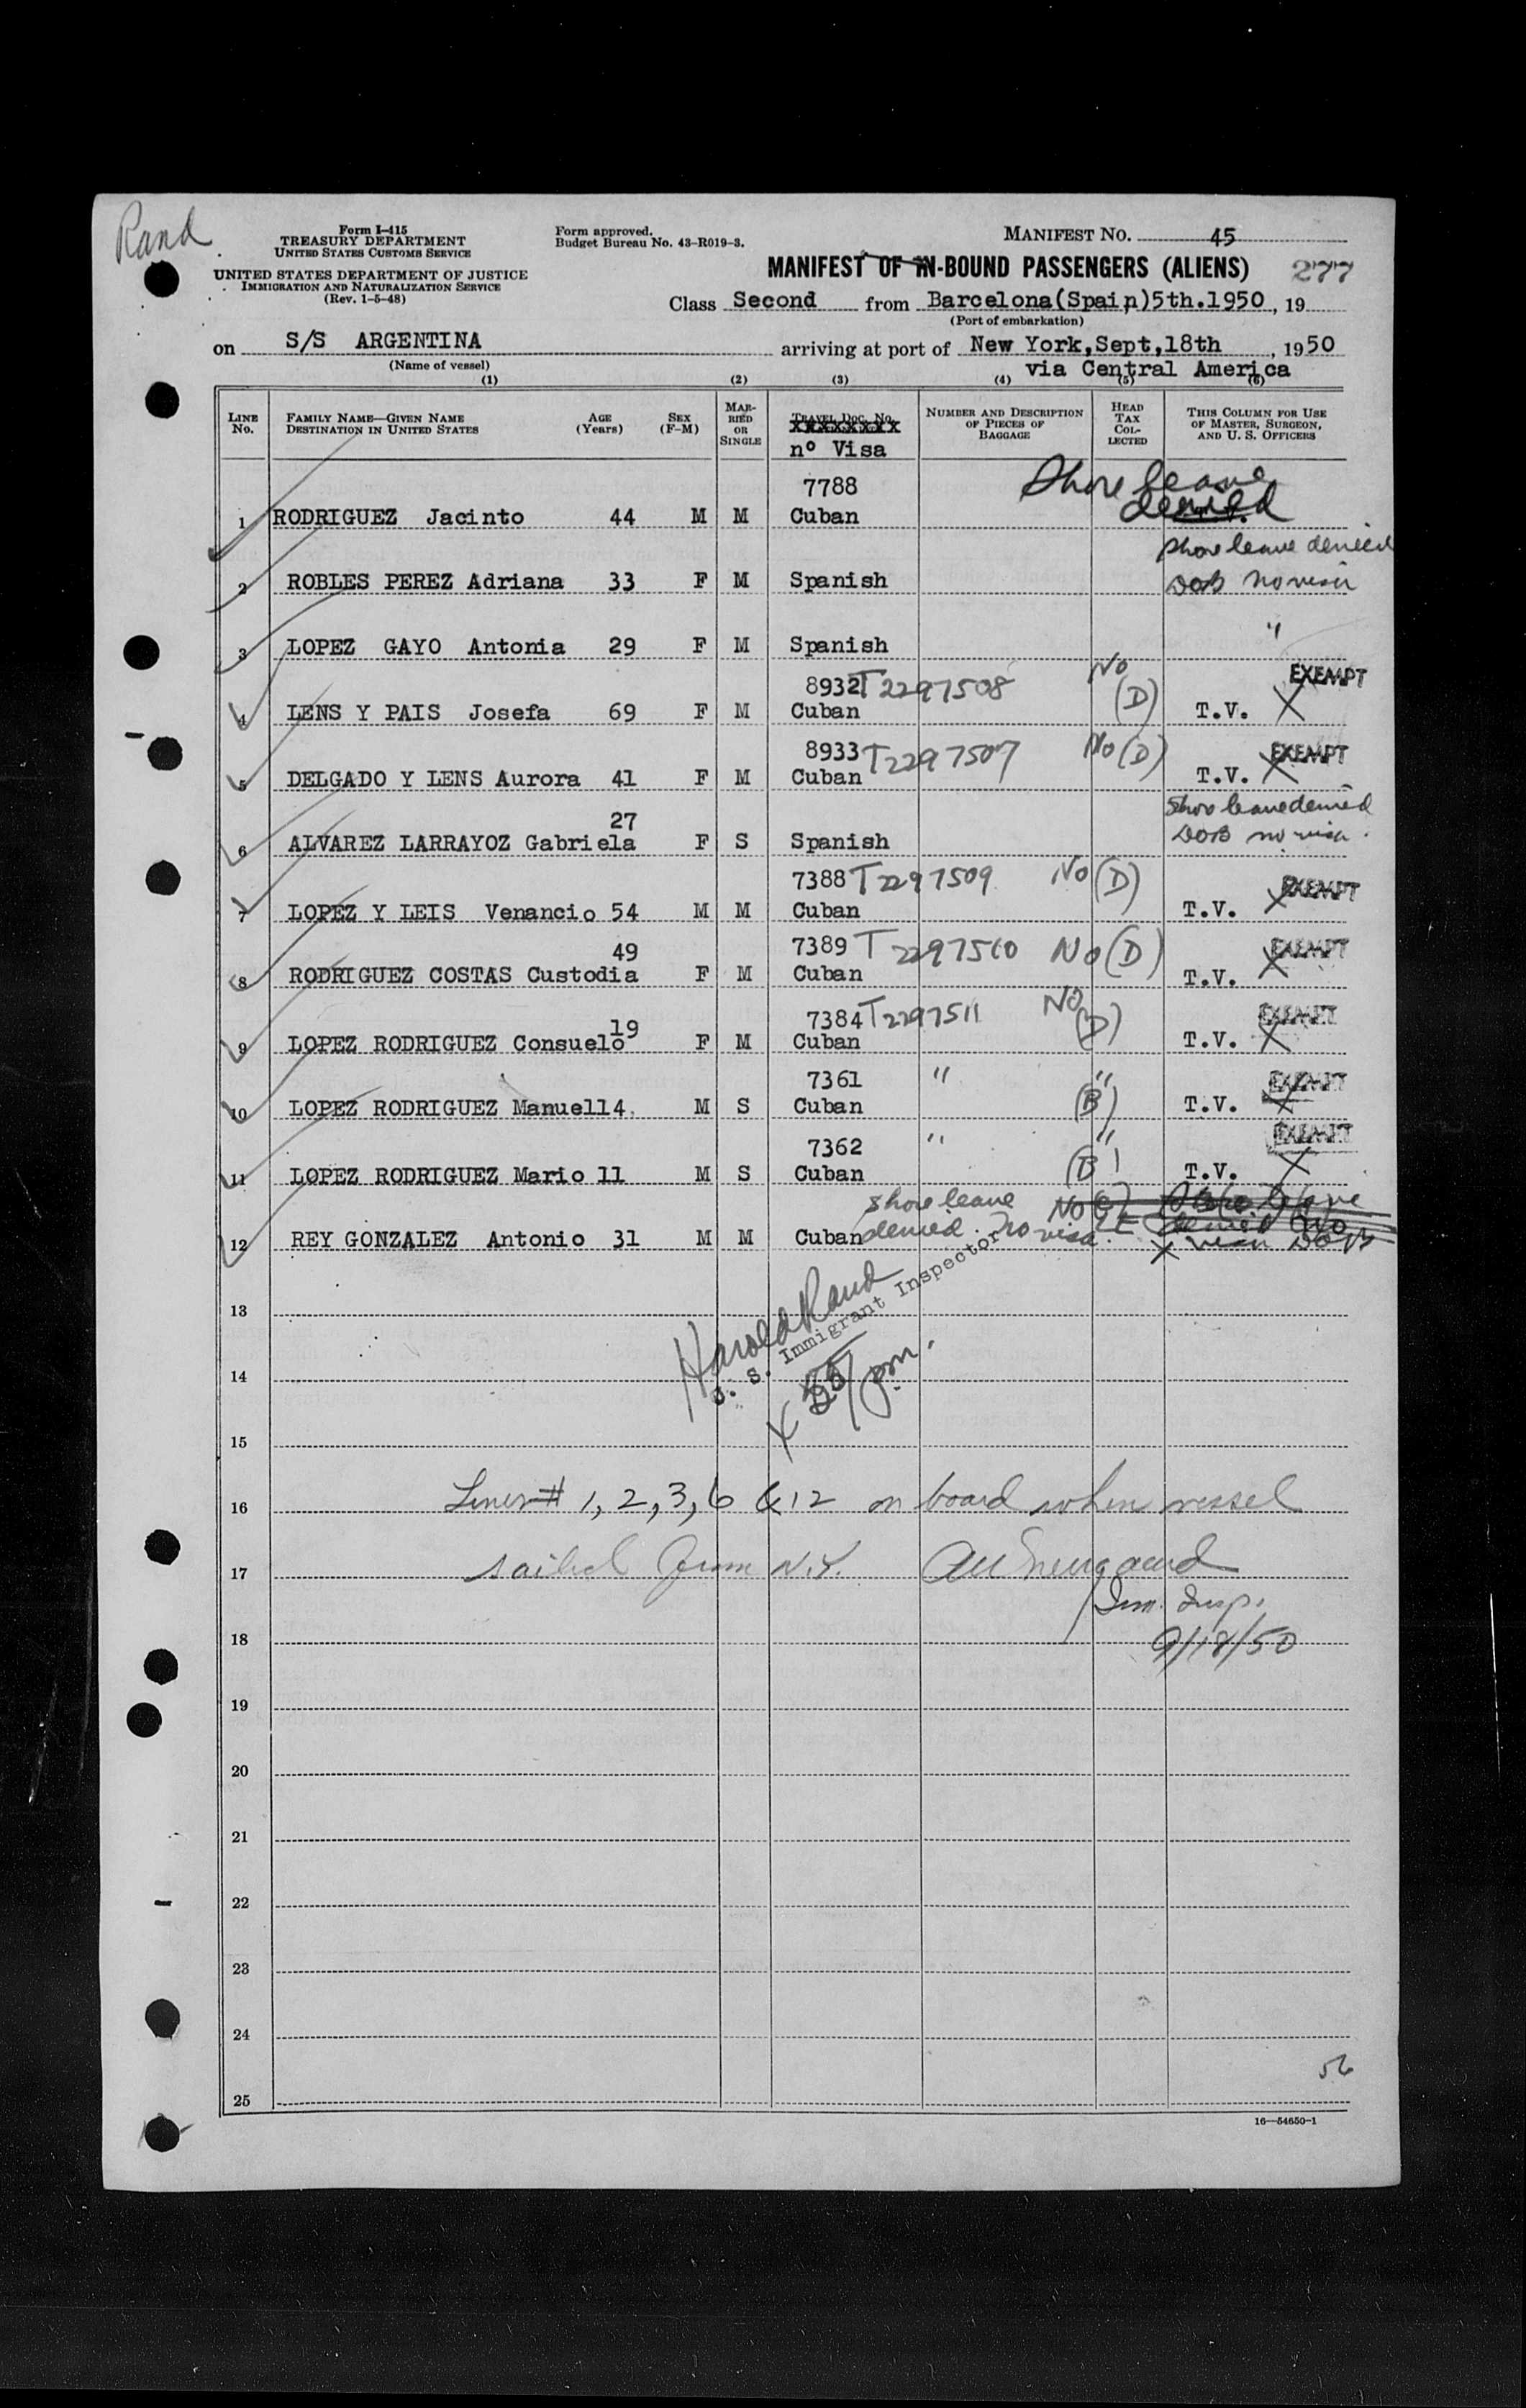 Rand
Form I-415
TREASURY DEPARTMENT
UNITED STATES CUSTOMS SERVICE
UNITED STATES DEPARTMENT OF JUSTICE
IMMIGRATION AND NATURALIZATION SERVICE
(Rev. 1-5-48)
Form approved.
Budget Bureau No. 43-R019-3.
MANIFEST NO. 45
MANIFEST OF IN-BOUND PASSENGERS (ALIENS) 277
Class Second from Barcelona(Spain)5th.1950, 19
(Port of embarkation)
on S/S ARGENTINA arriving at port of New York,Sept,18th, 1950
(Name of vessel) via Central America
(1) (2) (3) (4) (5) (6)
LINE NO. FAMILY NAME—GIVEN NAME DESTINATION IN UNITED STATES AGE (Years) SEX (F-M) MARRIED OR SINGLE TRAVEL DOC. NO. NUMBER AND DESCRIPTION OF PIECES OF BAGGAGE HEAD TAX COLLECTED THIS COLUMN FOR USE OF MASTER, SURGEON, AND U. S. OFFICERS
nº Visa
7788 Shore leave
1 RODRIGUEZ Jacinto 44 M M Cuban denied
Shore leave denied
2 ROBLES PEREZ Adriana 33 F M Spanish DOB no visa
3 LOPEZ GAYO Antonia 29 F M Spanish "
8932 T2297508 No EXEMPT
4 LENS Y PAIS Josefa 69 F M Cuban (D) T.V. X
8933 T2297507 No (D) EXEMPT
5 DELGADO Y LENS Aurora 41 F M Cuban T.V. X
27 Shore leave denied
6 ALVAREZ LARRAYOZ Gabriela F S Spanish DOB no visa.
7388 T2297509 No (D) EXEMPT
7 LOPEZ Y LEIS Venancio 54 M M Cuban T.V. X
49 7389 T2297510 No (D) EXEMPT
8 RODRIGUEZ COSTAS Custodia F M Cuban T.V. X
19 7384 T2297511 No EXEMPT
9 LOPEZ RODRIGUEZ Consuelo F M Cuban (D) T.V. X
7361 " " EXEMPT
10 LOPEZ RODRIGUEZ Manuel14 M S Cuban (B) T.V. X
7362 " " EXEMPT
11 LOPEZ RODRIGUEZ Mario 11 M S Cuban (B) T.V. X
shore leave No Shore leave
12 REY GONZALEZ Antonio 31 M M Cuban denied. no visa. denied no
X visa DOB
13
Harold Rand
U. S. Immigrant Inspector
14
X pm.
15
16 Lines # 1, 2, 3, 6 & 12 on board when vessel
17 sailed from N.Y.
Imm. Insp.
18 9/18/50
19
20
21
22
23
24
56
25
16—54650-1